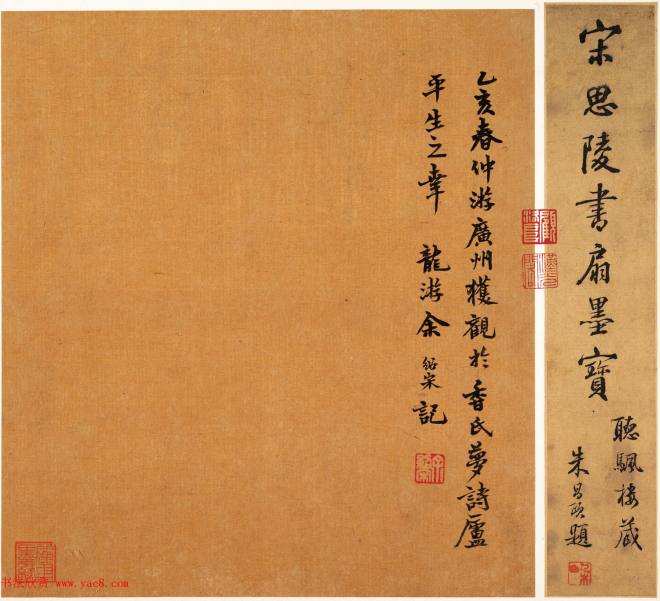 宋思陵書扇墨寶
聽颿樓藏
朱昌頤題
乙亥春仲游廣州獲觀於香氏夢詩廬
平生之幸 龍游余紹宋記
书法欣赏 www.yac8.com